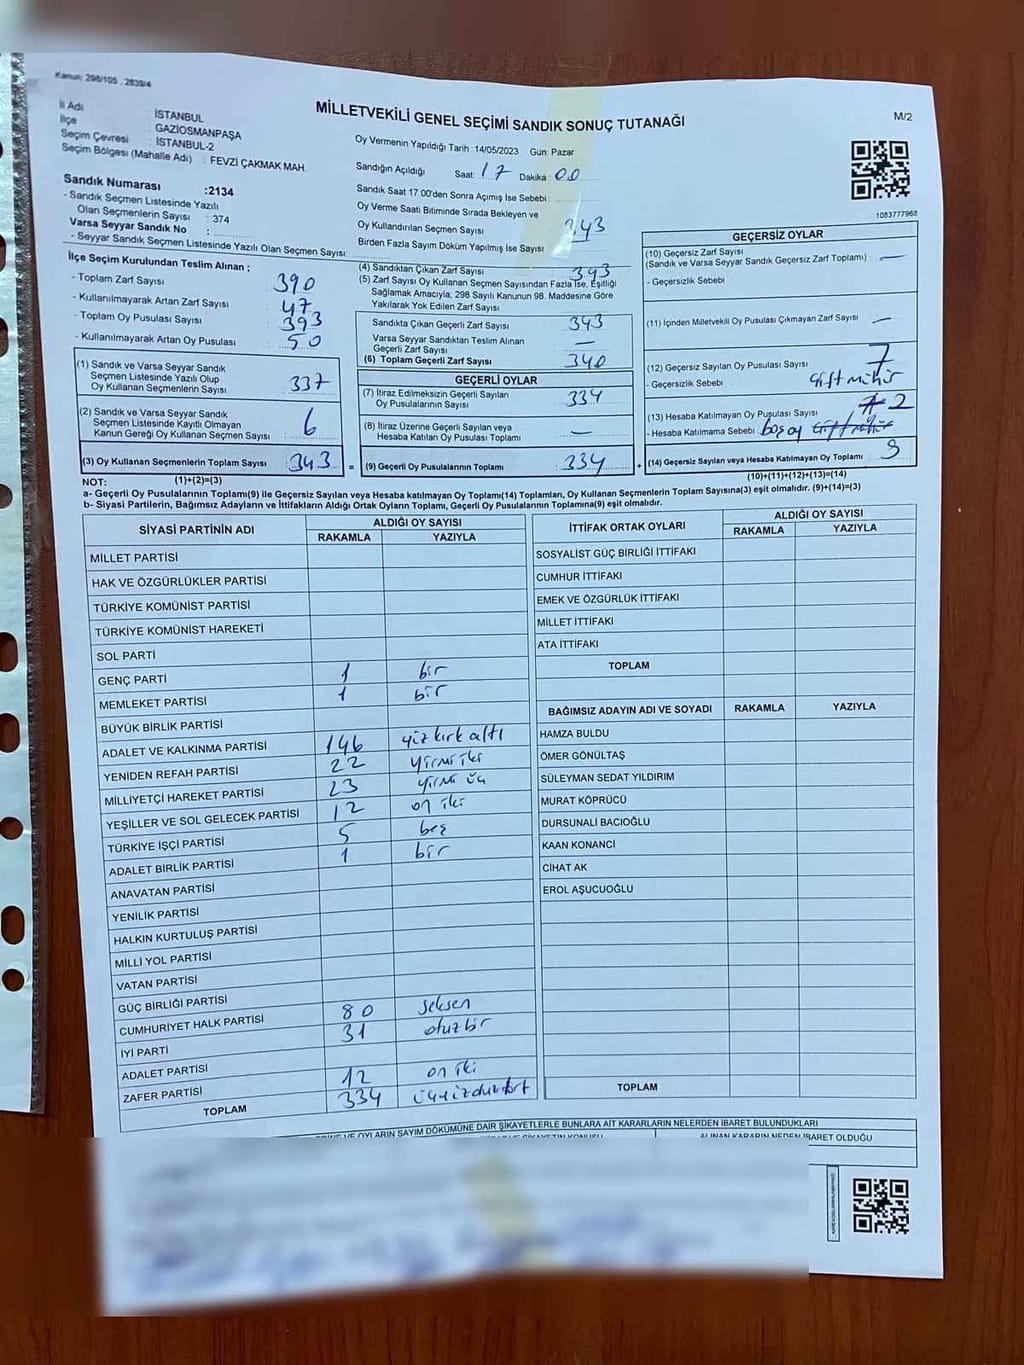 Kanun: 298/105 . 2839/4
İl Adı : İSTANBUL
İlçe : GAZİOSMANPAŞA
Seçim Çevresi : İSTANBUL-2
Seçim Bölgesi (Mahalle Adı) : FEVZİ ÇAKMAK MAH.
Sandık Numarası :2134
- Sandık Seçmen Listesinde Yazılı
Olan Seçmenlerin Sayısı : 374
Varsa Seyyar Sandık No :
- Seyyar Sandık Seçmen Listesinde Yazılı Olan Seçmen Sayısı:
MİLLETVEKİLİ GENEL SEÇİMİ SANDIK SONUÇ TUTANAĞI
M/2
Oy Vermenin Yapıldığı Tarih :14/05/2023 Gün: Pazar
Sandığın Açıldığı Saat: 17 Dakika: 00
Sandık Saat 17.00'den Sonra Açımış İse Sebebi :
Oy Verme Saati Bitiminde Sırada Bekleyen ve
Oy Kullandırılan Seçmen Sayısı 343
Birden Fazla Sayım Döküm Yapılmış İse Sayısı
1083777968
İlçe Seçim Kurulundan Teslim Alınan :
- Toplam Zarf Sayısı 390
- Kullanılmayarak Artan Zarf Sayısı 47
- Toplam Oy Pusulası Sayısı 393
- Kullanılmayarak Artan Oy Pusulası 50
(1) Sandık ve Varsa Seyyar Sandık
Seçmen Listesinde Yazılı Olup
Oy Kullanan Seçmenlerin Sayısı 337
(2) Sandık ve Varsa Seyyar Sandık
Seçmen Listesinde Kayıtlı Olmayan
Kanun Gereği Oy Kullanan Seçmen Sayısı 6
(3) Oy Kullanan Seçmenlerin Toplam Sayısı 343 =
(4) Sandıktan Çıkan Zarf Sayısı 343
(5) Zarf Sayısı Oy Kullanan Seçmen Sayısından Fazla İse, Eşitliği
Sağlamak Amacıyla; 298 Sayılı Kanunun 98. Maddesine Göre
Yakılarak Yok Edilen Zarf Sayısı
Sandıkta Çıkan Geçerli Zarf Sayısı 343
Varsa Seyyar Sandıktan Teslim Alınan
Geçerli Zarf Sayısı —
(6) Toplam Geçerli Zarf Sayısı 340
GEÇERLİ OYLAR
(7) İtiraz Edilmeksizin Geçerli Sayılan
Oy Pusulalarının Sayısı 334
(8) İtiraz Üzerine Geçerli Sayılan veya
Hesaba Katılan Oy Pusulası Toplamı —
(9) Geçerli Oy Pusulalarının Toplamı 334 +
GEÇERSİZ OYLAR
(10) Geçersiz Zarf Sayısı
(Sandık ve Varsa Seyyar Sandık Geçersiz Zarf Toplamı) —
- Geçersizlik Sebebi
(11) İçinden Milletvekili Oy Pusulası Çıkmayan Zarf Sayısı —
(12) Geçersiz Sayılan Oy Pusulası Sayısı 7
- Geçersizlik Sebebi Çift mühür
(13) Hesaba Katılmayan Oy Pusulası Sayısı 2
- Hesaba Katılmama Sebebi boş oy
(14) Geçersiz Sayılan veya Hesaba Katılmayan Oy Toplamı 9
NOT: (1)+(2)=(3) (10)+(11)+(12)+(13)=(14)
a- Geçerli Oy Pusulalarının Toplamı(9) ile Geçersiz Sayılan veya Hesaba katılmayan Oy Toplamı(14) Toplamları, Oy Kullanan Seçmenlerin Toplam Sayısına(3) eşit olmalıdır. (9)+(14)=(3)
b- Siyasi Partilerin, Bağımsız Adayların ve İttifakların Aldığı Ortak Oyların Toplamı, Geçerli Oy Pusulalarının Toplamına(9) eşit olmalıdır.
SİYASİ PARTİNİN ADI ALDIĞI OY SAYISI
RAKAMLA YAZIYLA
MİLLET PARTİSİ
HAK VE ÖZGÜRLÜKLER PARTİSİ
TÜRKİYE KOMÜNİST PARTİSİ
TÜRKİYE KOMÜNİST HAREKETİ
SOL PARTİ
GENÇ PARTİ 1 bir
MEMLEKET PARTİSİ 1 bir
BÜYÜK BİRLİK PARTİSİ
ADALET VE KALKINMA PARTİSİ 146 yüz kırk altı
YENİDEN REFAH PARTİSİ 22 yirmi iki
MİLLİYETÇİ HAREKET PARTİSİ 23 yirmi üç
YEŞİLLER VE SOL GELECEK PARTİSİ 12 on iki
TÜRKİYE İŞÇİ PARTİSİ 5 beş
ADALET BİRLİK PARTİSİ 1 bir
ANAVATAN PARTİSİ
YENİLİK PARTİSİ
HALKIN KURTULUŞ PARTİSİ
MİLLİ YOL PARTİSİ
VATAN PARTİSİ
GÜÇ BİRLİĞİ PARTİSİ
CUMHURİYET HALK PARTİSİ 80 seksen
İYİ PARTİ 31 otuz bir
ADALET PARTİSİ
ZAFER PARTİSİ 12 on iki
TOPLAM 334 üçyüzotuzdört
İTTİFAK ORTAK OYLARI ALDIĞI OY SAYISI
RAKAMLA YAZIYLA
SOSYALİST GÜÇ BİRLİĞİ İTTİFAKI
CUMHUR İTTİFAKI
EMEK VE ÖZGÜRLÜK İTTİFAKI
MİLLET İTTİFAKI
ATA İTTİFAKI
TOPLAM
BAĞIMSIZ ADAYIN ADI VE SOYADI RAKAMLA YAZIYLA
HAMZA BULDU
ÖMER GÖNÜLTAŞ
SÜLEYMAN SEDAT YILDIRIM
MURAT KÖPRÜCÜ
DURSUNALİ BACIOĞLU
KAAN KONANCI
CİHAT AK
EROL AŞUCUOĞLU
TOPLAM
VE OYLARIN SAYIM DÖKÜMÜNE DAİR ŞİKAYETLERLE BUNLARA AİT KARARLARIN NELERDEN İBARET BULUNDUKLARI
ALINAN KARARIN NEDEN İBARET OLDUĞU